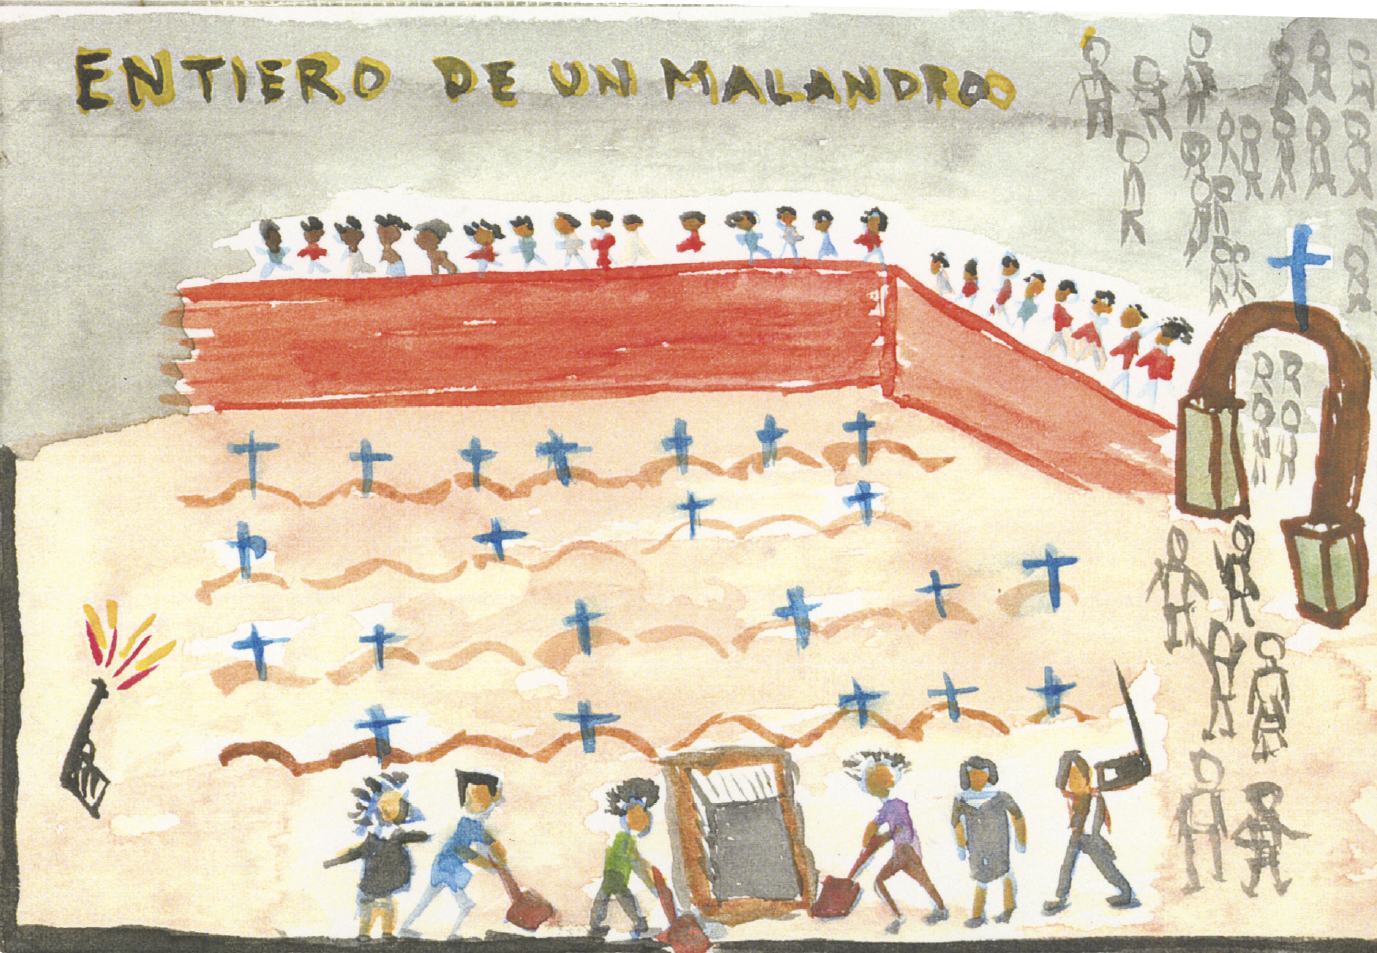 ENTIERO DE UN MALANDRO